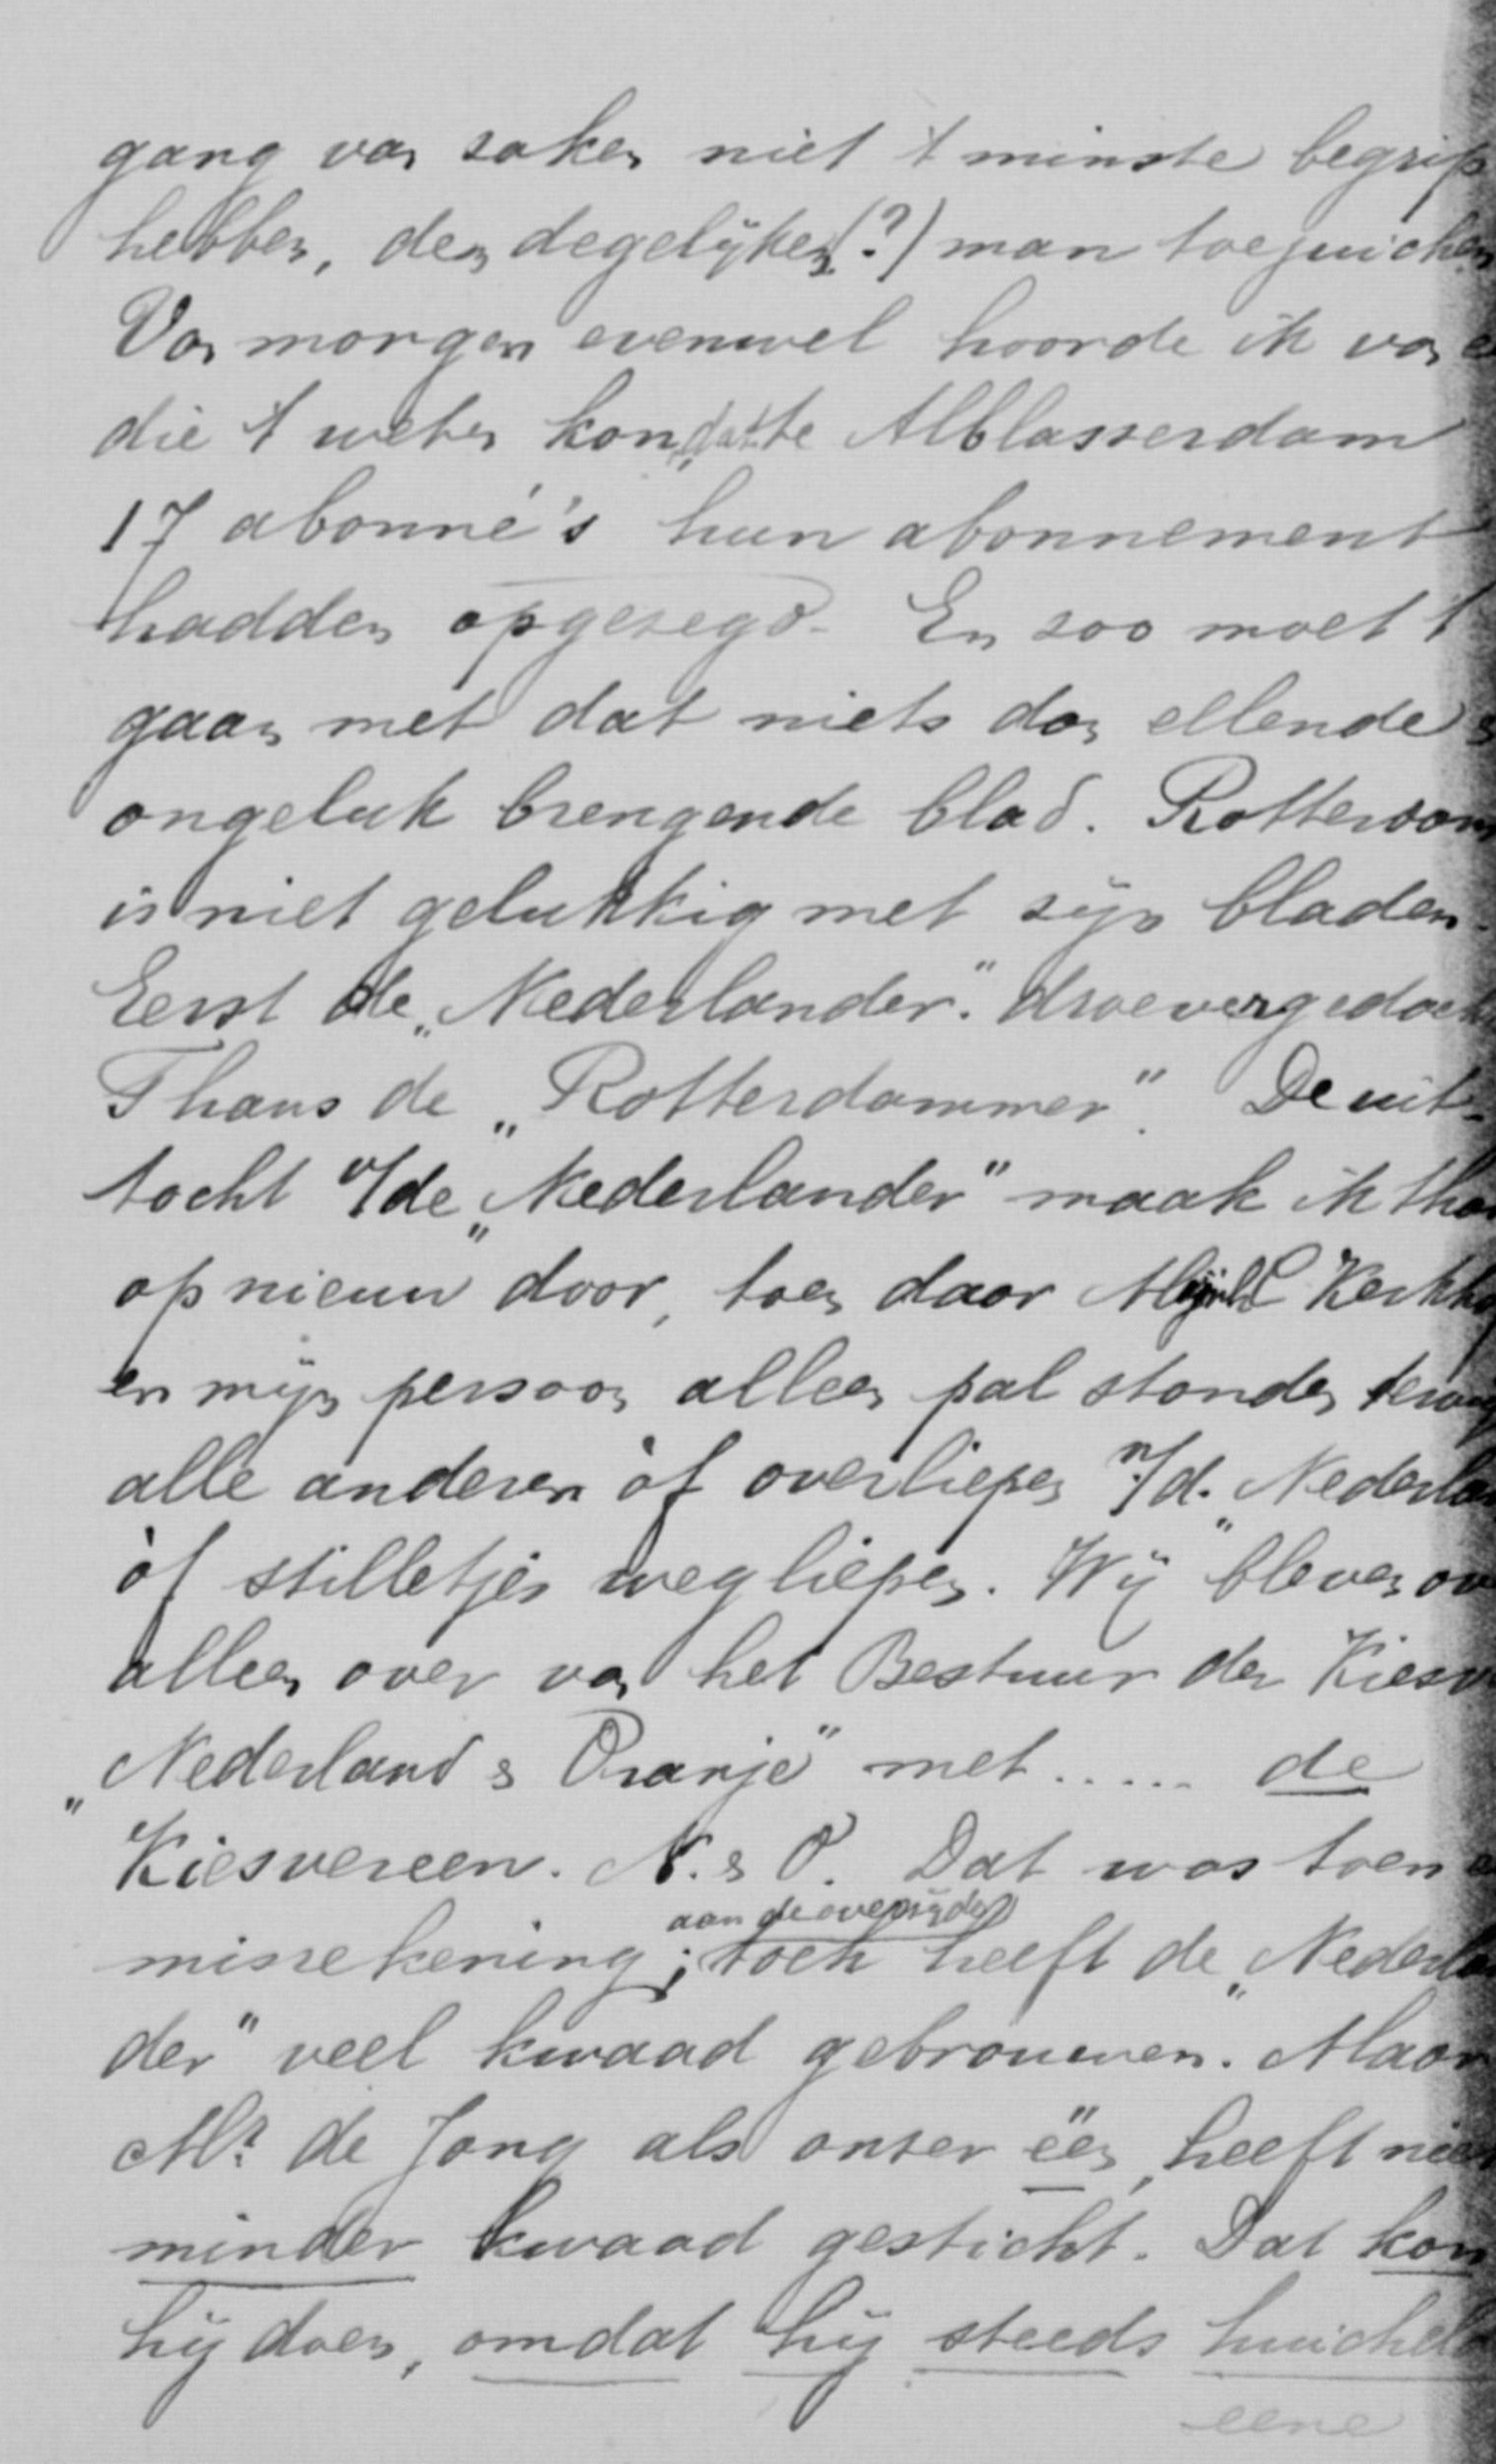 gang van zaken niet 't minste begrip
hebben, den degelijken (?) man toejuichen
Van morgen evenwel hoorde ik van
die 't weten kon, dat te Alblasserdam
17 abonné's hun abonnement
hadden opgezegd. En zoo moet 't
gaan met dat niets dan ellende &
ongeluk brengende blad. Rotterdam
is niet gelukkig met zijn bladen.
Eerst de „Nederlander". droevergedach
Thans de „Rotterdammer". De uit-
tocht v/de „Nederlander" maak ik than
op nieuw door, toen daar Kerkho
en mijn persoon alleen pal stonden terwijl
alle anderen òf overliepen n/d. „Nederlan
òf stilletjes wegliepen. Wij bleven ov
alleen over van het Bestuur der Kiesv
„Nederland & Oranje" met..... de
Kiesvereen. N. & O. Dat was toen e
misrekening aan de overzijde; toch heeft de „Nederlan
der" veel kwaad gebrouwen. Maar
Mr. de Jong als onzer ëën, heeft niet
minder kwaad gesticht. Dat kon
hij doen, omdat hij steeds huichel
eene